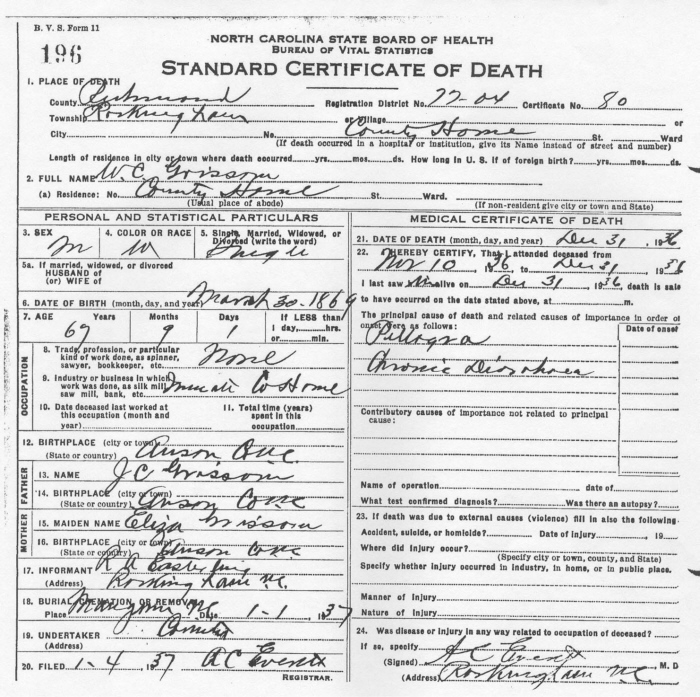 B. V. S. Form 11
196
NORTH CAROLINA STATE BOARD OF HEALTH
BUREAU OF VITAL STATISTICS
STANDARD CERTIFICATE OF DEATH
1. PLACE OF DEATH
County Richmond Registration District No. 77-04 Certificate No. 80
Township Rockingham or Village or
City No. County Home St. Ward
(If death occurred in a hospital or institution, give its Name instead of street and number)
Length of residence in city or town where death occurred yrs. mos. ds. How long in U. S. if of foreign birth? yrs. mos. ds.
2. FULL NAME W. C. Grissom
(a) Residence: No. County Home St. Ward.
(Usual place of abode) (If non-resident give city or town and State)
PERSONAL AND STATISTICAL PARTICULARS
3. SEX 4. COLOR OR RACE 5. Single, Married, Widowed, or Divorced (write the word)
M W Single
5a. If married, widowed, or divorced
HUSBAND of
(or) WIFE of
6. DATE OF BIRTH (month, day, and year) March 30-1869
7. AGE Years Months Days If LESS than
67 9 1 1 day, hrs.
or min.
OCCUPATION
8. Trade, profession, or particular kind of work done, as spinner, sawyer, bookkeeper, etc. None
9. Industry or business in which work was done, as silk mill, saw mill, bank, etc. Inmate Co Home
10. Date deceased last worked at this occupation (month and year)
11. Total time (years) spent in this occupation
12. BIRTHPLACE (city or town) Anson Co NC
(State or country)
FATHER
13. NAME J C Grissom
14. BIRTHPLACE (city or town) Anson Co NC
(State or country)
MOTHER
15. MAIDEN NAME Eliza Grissom
16. BIRTHPLACE (city or town) Anson Co NC
(State or country)
17. INFORMANT R A Easterling
(Address) Rockingham N.C.
18. BURIAL, CREMATION, OR REMOVAL
Place NC Date 1-1 1937
19. UNDERTAKER County
(Address)
20. FILED 1-4 1937 A C Everett
REGISTRAR.
MEDICAL CERTIFICATE OF DEATH
21. DATE OF DEATH (month, day, and year) Dec 31, 1936
22. I HEREBY CERTIFY, That I attended deceased from
10, 1936 to Dec 31, 1936
I last saw alive on Dec 31, 1936 death is said
to have occurred on the date stated above, at m.
The principal cause of death and related causes of importance in order of onset were as follows: Date of onset
Pellagra
Chronic Diorrhoea
Contributory causes of importance not related to principal cause:
Name of operation date of
What test confirmed diagnosis? Was there an autopsy?
23. If death was due to external causes (violence) fill in also the following:
Accident, suicide, or homicide? Date of injury , 19
Where did injury occur?
(Specify city or town, county, and State)
Specify whether injury occurred in industry, in home, or in public place.
Manner of Injury
Nature of Injury
24. Was disease or injury in any way related to occupation of deceased?
If so, specify
(Signed) A C Everett M. D
(Address) Rockingham N.C.